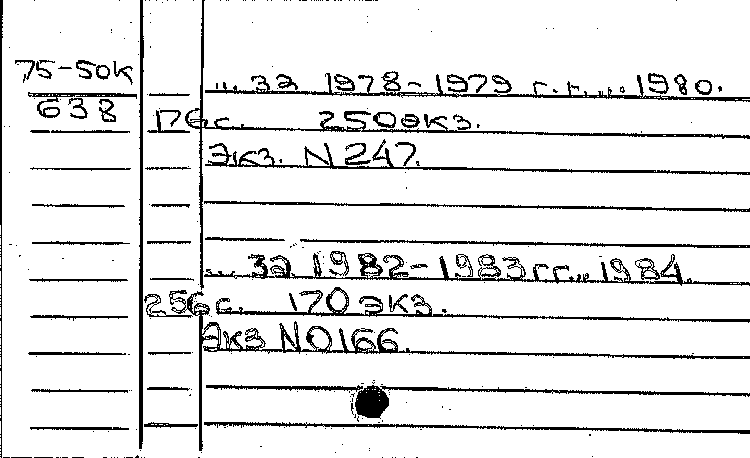 75-50к
... за 1978-1979 г.г.... 1980.
638
176с. 250экз.
Экз. N 247.
... за 1982-1983гг... 1984.
256с. 170 экз.
Экз N0166.